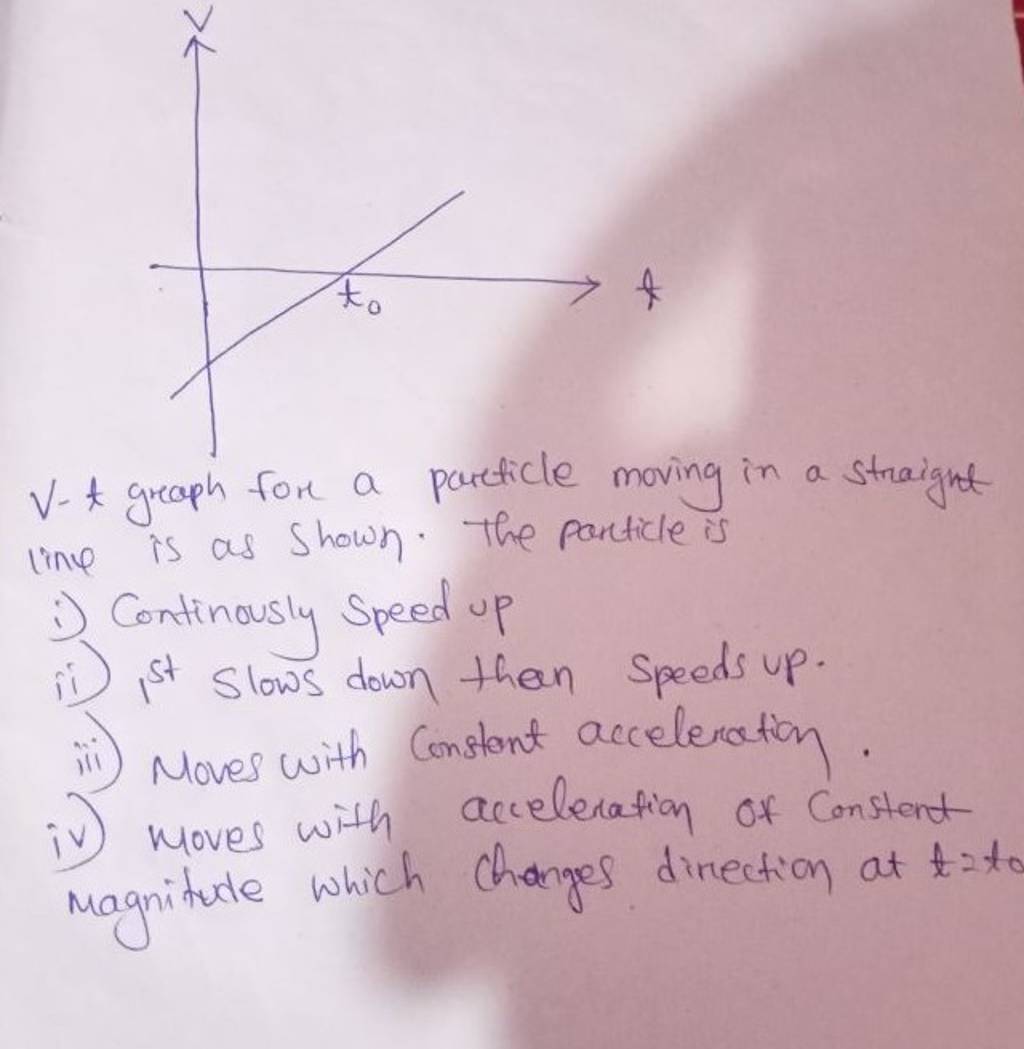 V
t
t₀
V-t graph for a particle moving in a straight
line is as shown. The particle is
i) Continously Speed up
ii) 1st slows down then speeds up.
iii) Moves with Constant acceleration.
iv) Moves with acceleration of Constent
magnitude which changes direction at t=t₀